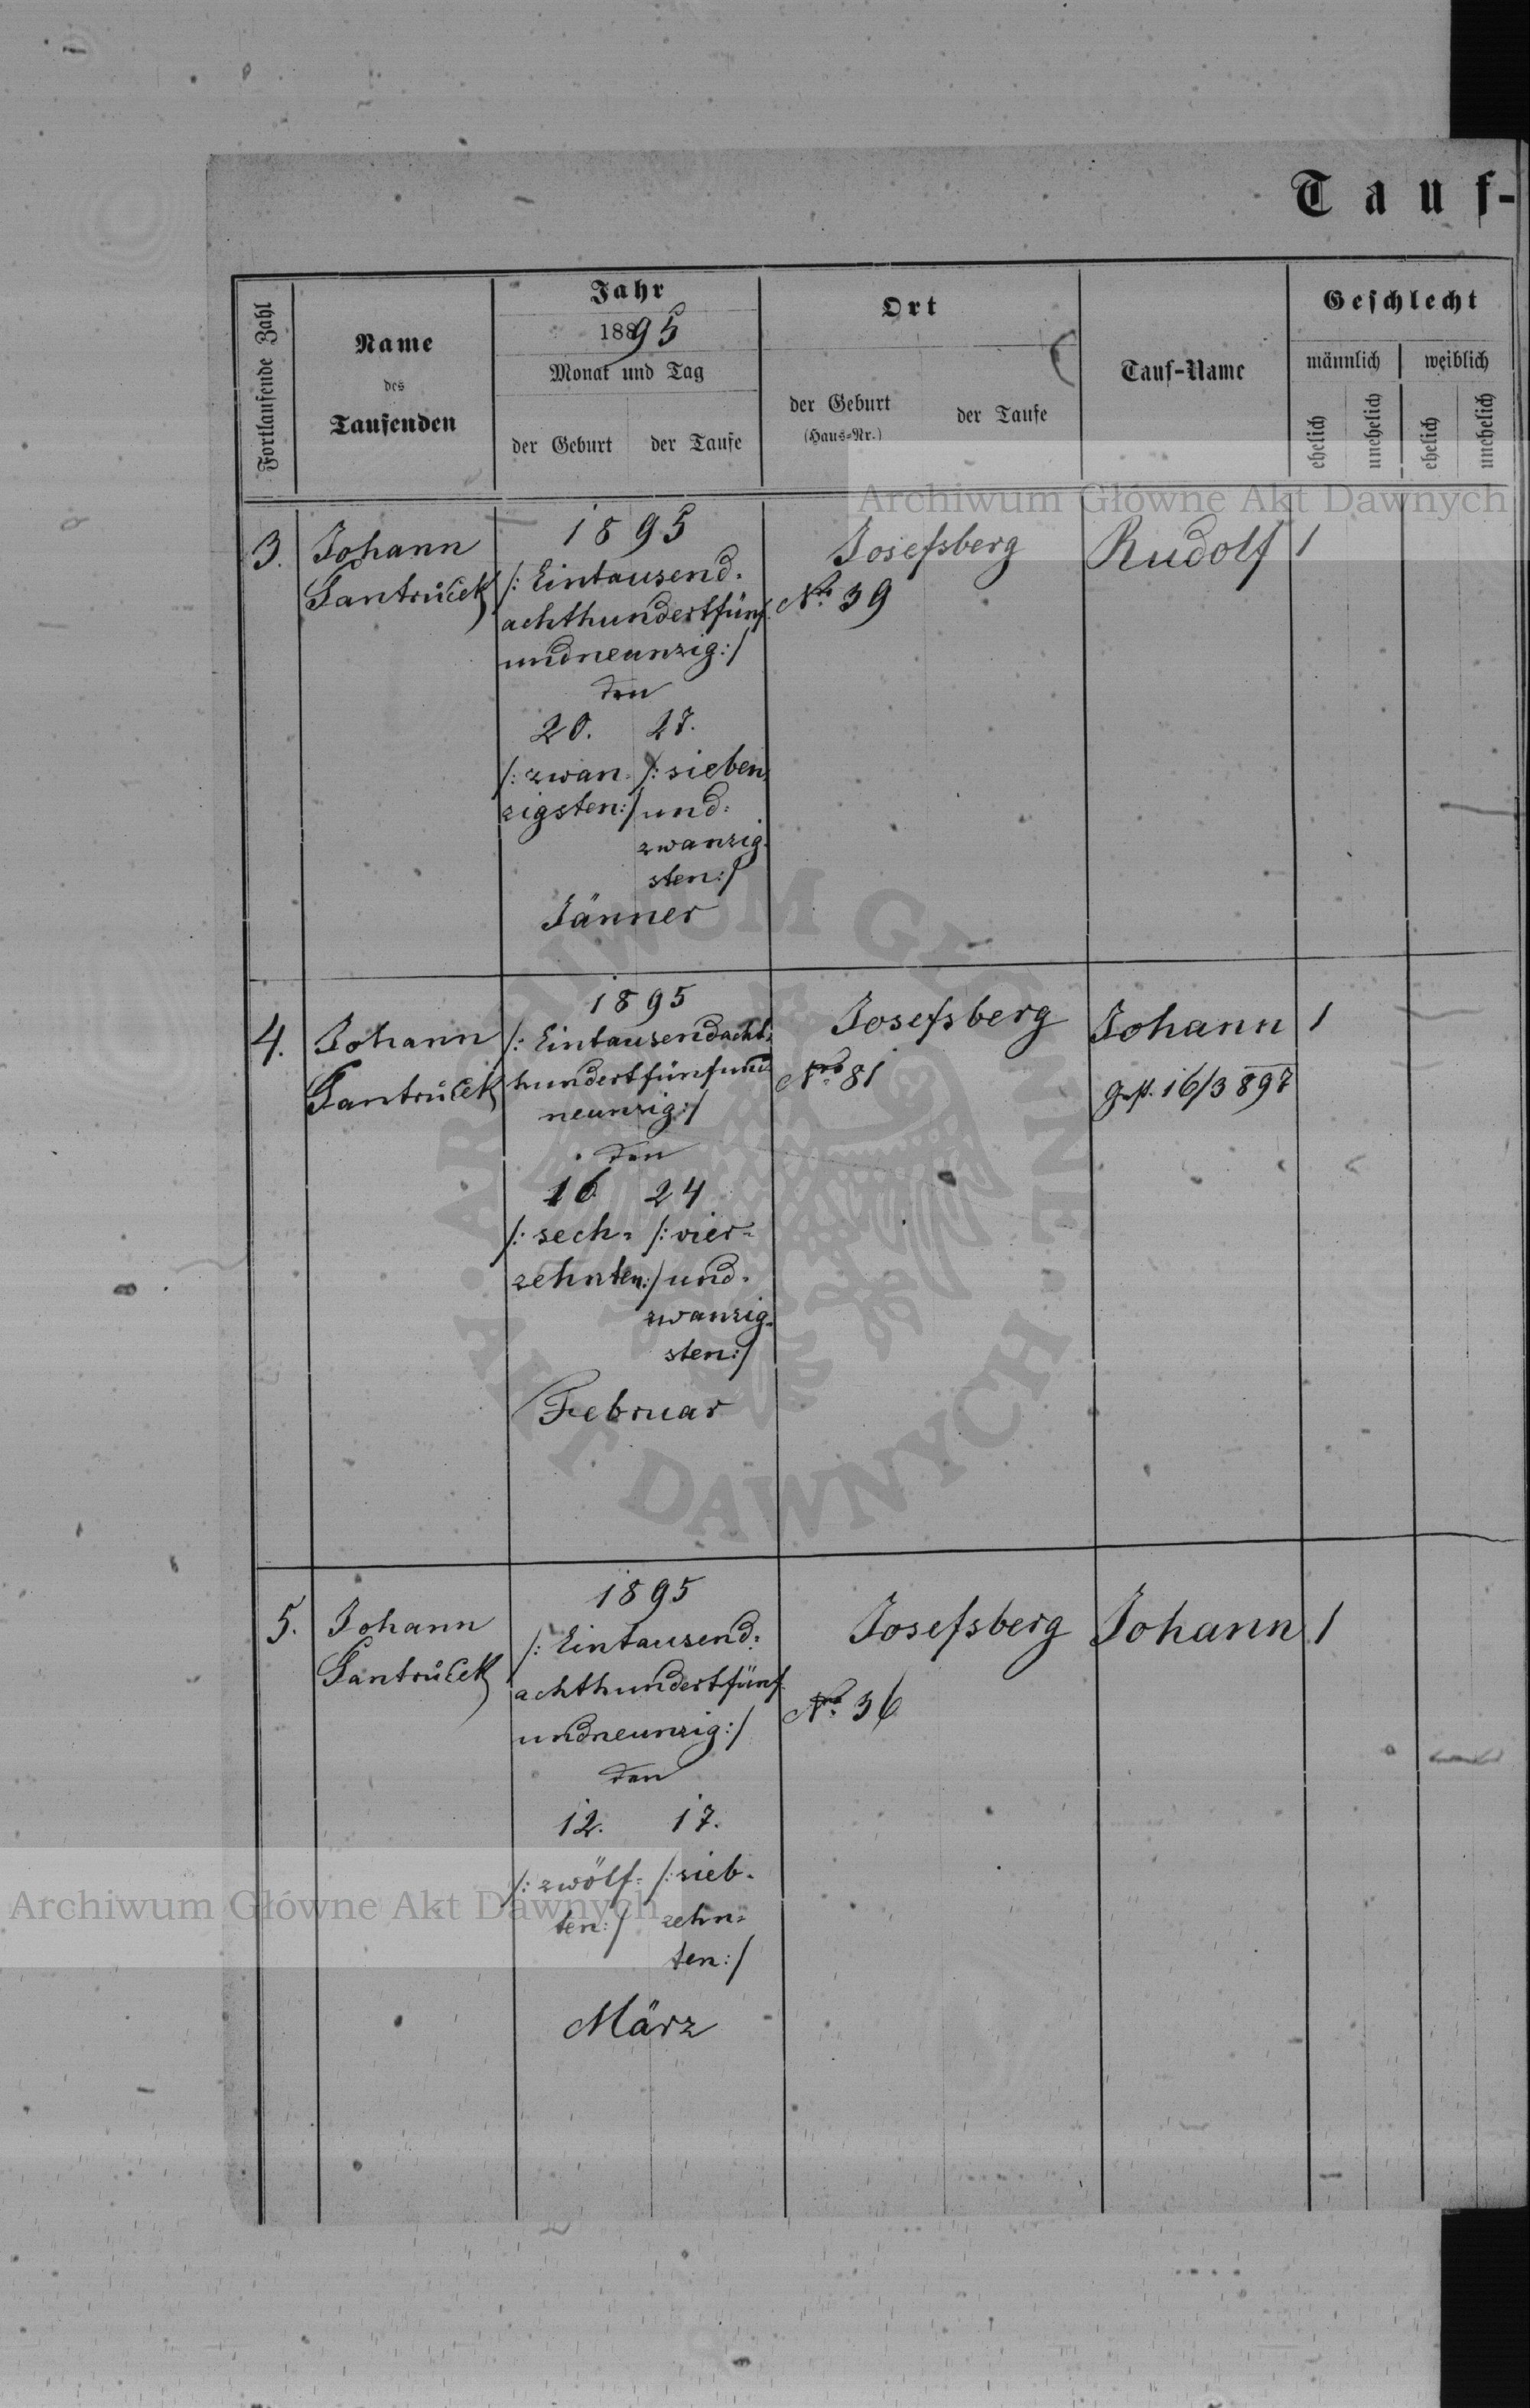 Tauf-
Fortlaufende Zahl
Name
des
Taufenden
Jahr
18895
Monat und Tag
der Geburt
der Taufe
Ort
der Geburt
(Haus-Nr.)
der Taufe
Tauf-Name
Geschlecht
männlich
weiblich
ehelich
unehelich
ehelich
unehelich
Archiwum Główne Akt Dawnych
3.
Johann
Santrůček
1895
/: Eintausend=
achthundertfünf=
undneunzig:/
den
20. 27.
/: zwan= /: sieben=
zigsten:/ und=
zwanzig=
sten:/
Jänner
Josefsberg
Nr. 39
Rudolf
1
4.
Johann
Santrůček
1895
/: Eintausendacht=
hundertfünfund=
neunzig:/
den
16 24
/: sech= /: vier=
zehnten:/ und=
zwanzig=
sten:/
Februar
Josefsberg
Nro 81
Johann
gest. 16/3 897
1
5.
Johann
Santrůček
1895
/: Eintausend=
achthundertfünf=
undneunzig:/
den
12. 17.
/: zwölf= /: sieb=
ten:/ zehn=
ten:/
März
Josefsberg
Nro 36
Johann
1
Archiwum Główne Akt Dawnych
ARCHIWUM GŁÓWNE · AKT DAWNYCH ·